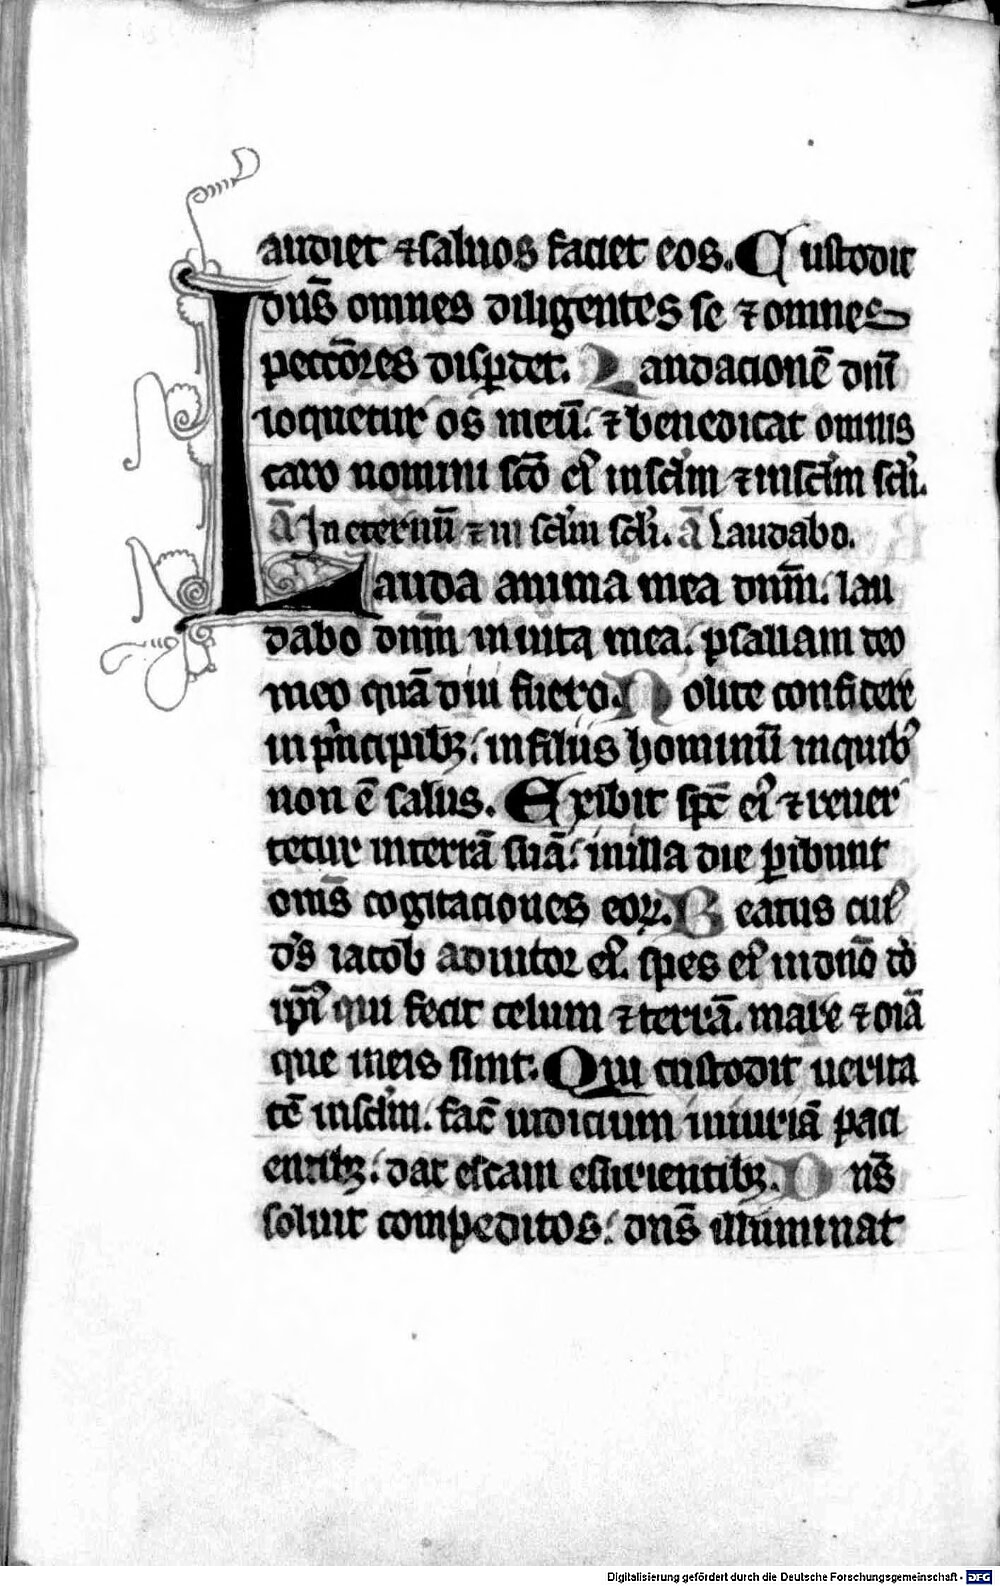 audiet ⁊ saluos faciet eos. Custodit
dn̄s omnes diligentes se ⁊ omnes
peccōres disꝑdet. Laudacionē dn̄i
loquetur os meū. ⁊ benedicat omnis
caro nomini scō eiꝰ insclm̄ ⁊ insclm̄ scli.
A In eternū ⁊ in sclm̄ scli. A Laudabo.
Lauda anima mea dnm̄. lau
dabo dnm̄ in uita mea. psallam deo
meo quā diu fuero. Nolite confidere
in pͥncipibꝫ. in filiis hominū in quibꝰ
non ē salus. Exibit spc̄ eiꝰ ⁊ reuer
tetur in terrā suā. in illa die ꝑibunt
om̄s cogitaciones eoꝝ. Beatus cuiꝰ
ds̄ iacob adiutor eiꝰ. spes eiꝰ in dn̄o dō
ipīꝰ qui fecit celum ⁊ terrā. mare ⁊ oīa
que in eis sunt. Qui custodit uerita
tē insclm̄. fac̄ iudicium iniuriā paci
entibꝫ. dat escam esurientibꝫ. Dn̄s
soluit compeditos. dn̄s illuminat
Digitalisierung gefördert durch die Deutsche Forschungsgemeinschaft - DFG